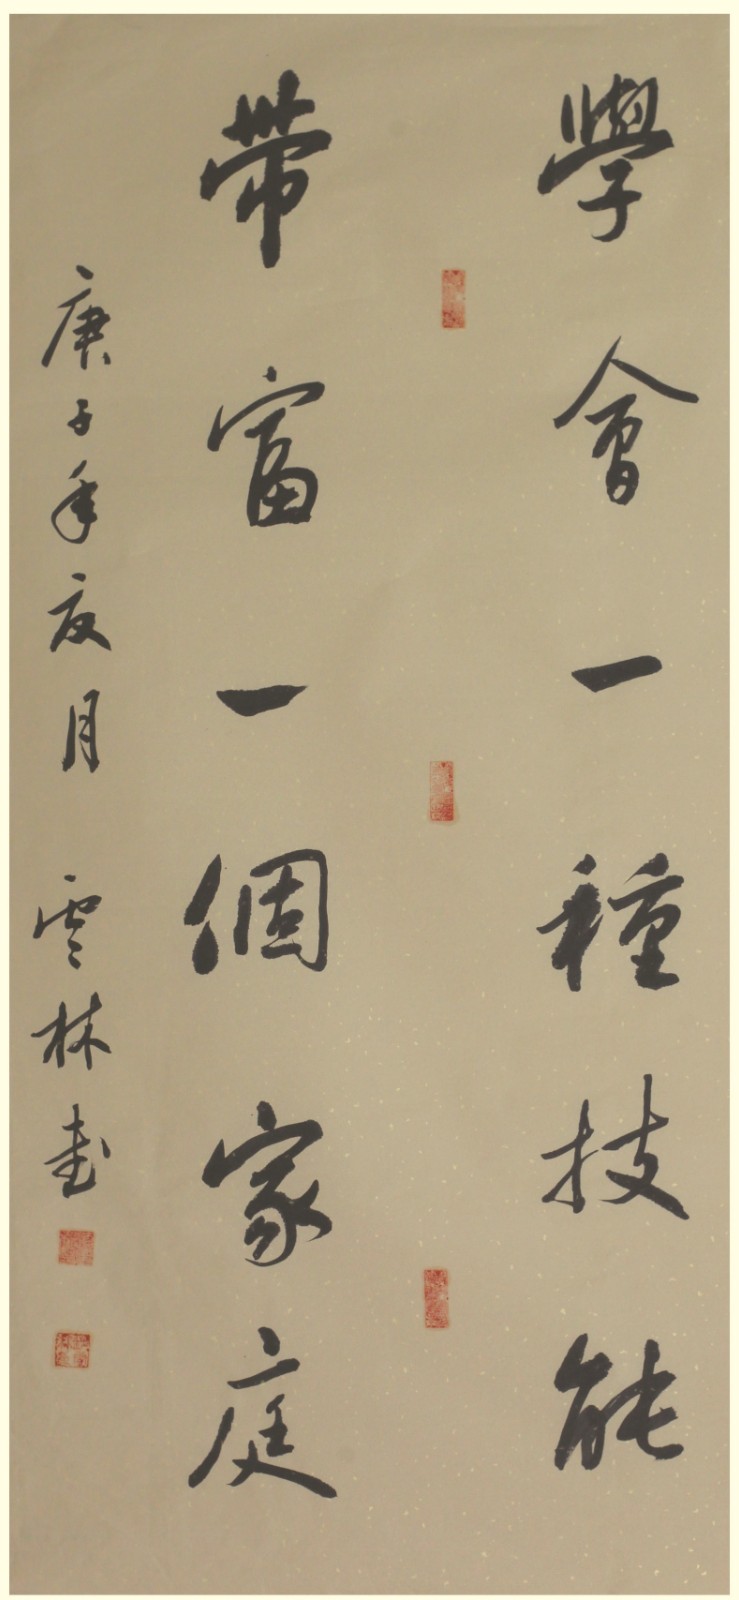 學會一種技能
帶富一個家庭
庚子年夜月 雲林書